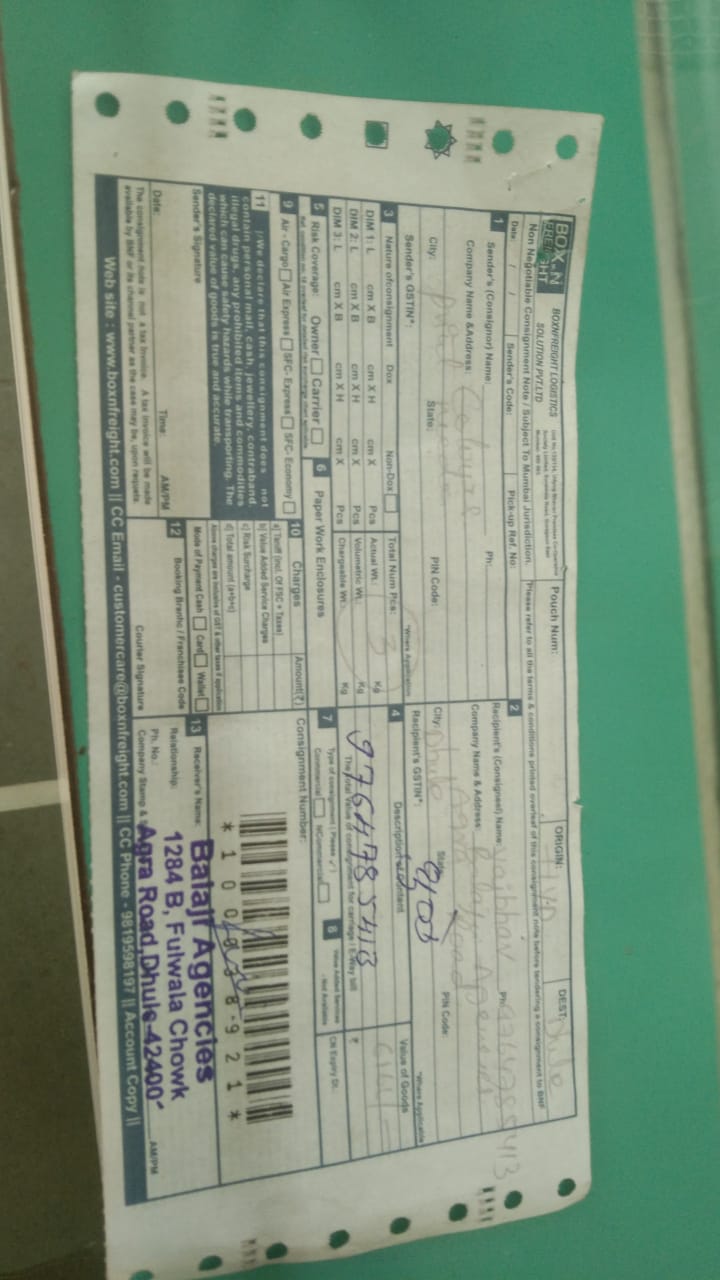 BOX N FREIGHT
BOXNFREIGHT LOGISTICS
SOLUTION PVT.LTD
Pouch Num:
ORIGIN: HYD
DEST: Dhule
Non Negotiable Consignment Note / Subject To Mumbai Jurisdiction.
*Please refer to all the terms & conditions printed overleaf of this consignment note before tendering a consignment to BNF
Date: / /
Sender's Code:
Pick-up Ref. No:
1
Sender's (Consignor) Name:
Ph:
Company Name &Address: Colours
City:
State:
PIN Code:
Sender's GSTIN*:
*Where Application
2
Recipient's (Consignee) Name: Vaibhav Ph: 9764785413
Company Name & Address: Balaji Agencies
Agra Road
City: Dhule
State:
PIN Code:
Recipient's GSTIN*:
*Where Applicable
3 Nature ofconsignment Dox Non-Dox
DIM 1: L cm X B cm X H cm X Pcs
DIM 2: L cm X B cm X H cm X Pcs
DIM 3: L cm X B cm X H cm X Pcs
Total Num Pcs: 3
Actual Wt.: Kg
Volumetric Wt.: Kg
Chargeable Wt.: Kg
4 Description of Content
Value of Goods
9764785413
The Total Value of consignment for carriage / E-Way bill
₹
5 Risk Coverage: Owner Carrier
6 Paper Work Enclosures
7 Type of consignment ( Please ✓)
Commercial NCommercial
8 Value Added Services
- Not Available
CN Expiry Dt.:
9 Air - Cargo Air Express SFC- Express SFC- Economy
10 Charges Amount(₹)
a) Tariff (Incl. Of FSC + Taxes)
b) Value Added Service Charges
c) Risk Surcharge
d) Total amount (a+b+c)
Above charges are inclusive of GST & other taxes if application
11 I/We declare that this consignment does not
contain personal mail, cash, jewellery, contraband,
illegal drugs, any prohibited items and commodities
which can cause safety hazards while transporting. The
declared value of goods is true and accurate.
Sender's Signature
Date: Time: AM/PM
The consignment note is not a tax Invoice. A tax invoice will be made
available by BNF or its channel partner as the case may be, upon requets.
Mode of Payment Cash Card Wallet
12 Booking Branhc / Franchisee Code
Courier Signature
Consignment Number:
*100038921*
13 Receiver's Name:
Relationship:
Ph. No.:
Company Stamp &
AM/PM
Balaji Agencies
1284 B, Fulwala Chowk
Agra Road,Dhule-42400
Web site : www.boxnfreight.com || CC Email - customercare@boxnfreight.com || CC Phone - 9819598197 || Account Copy ||